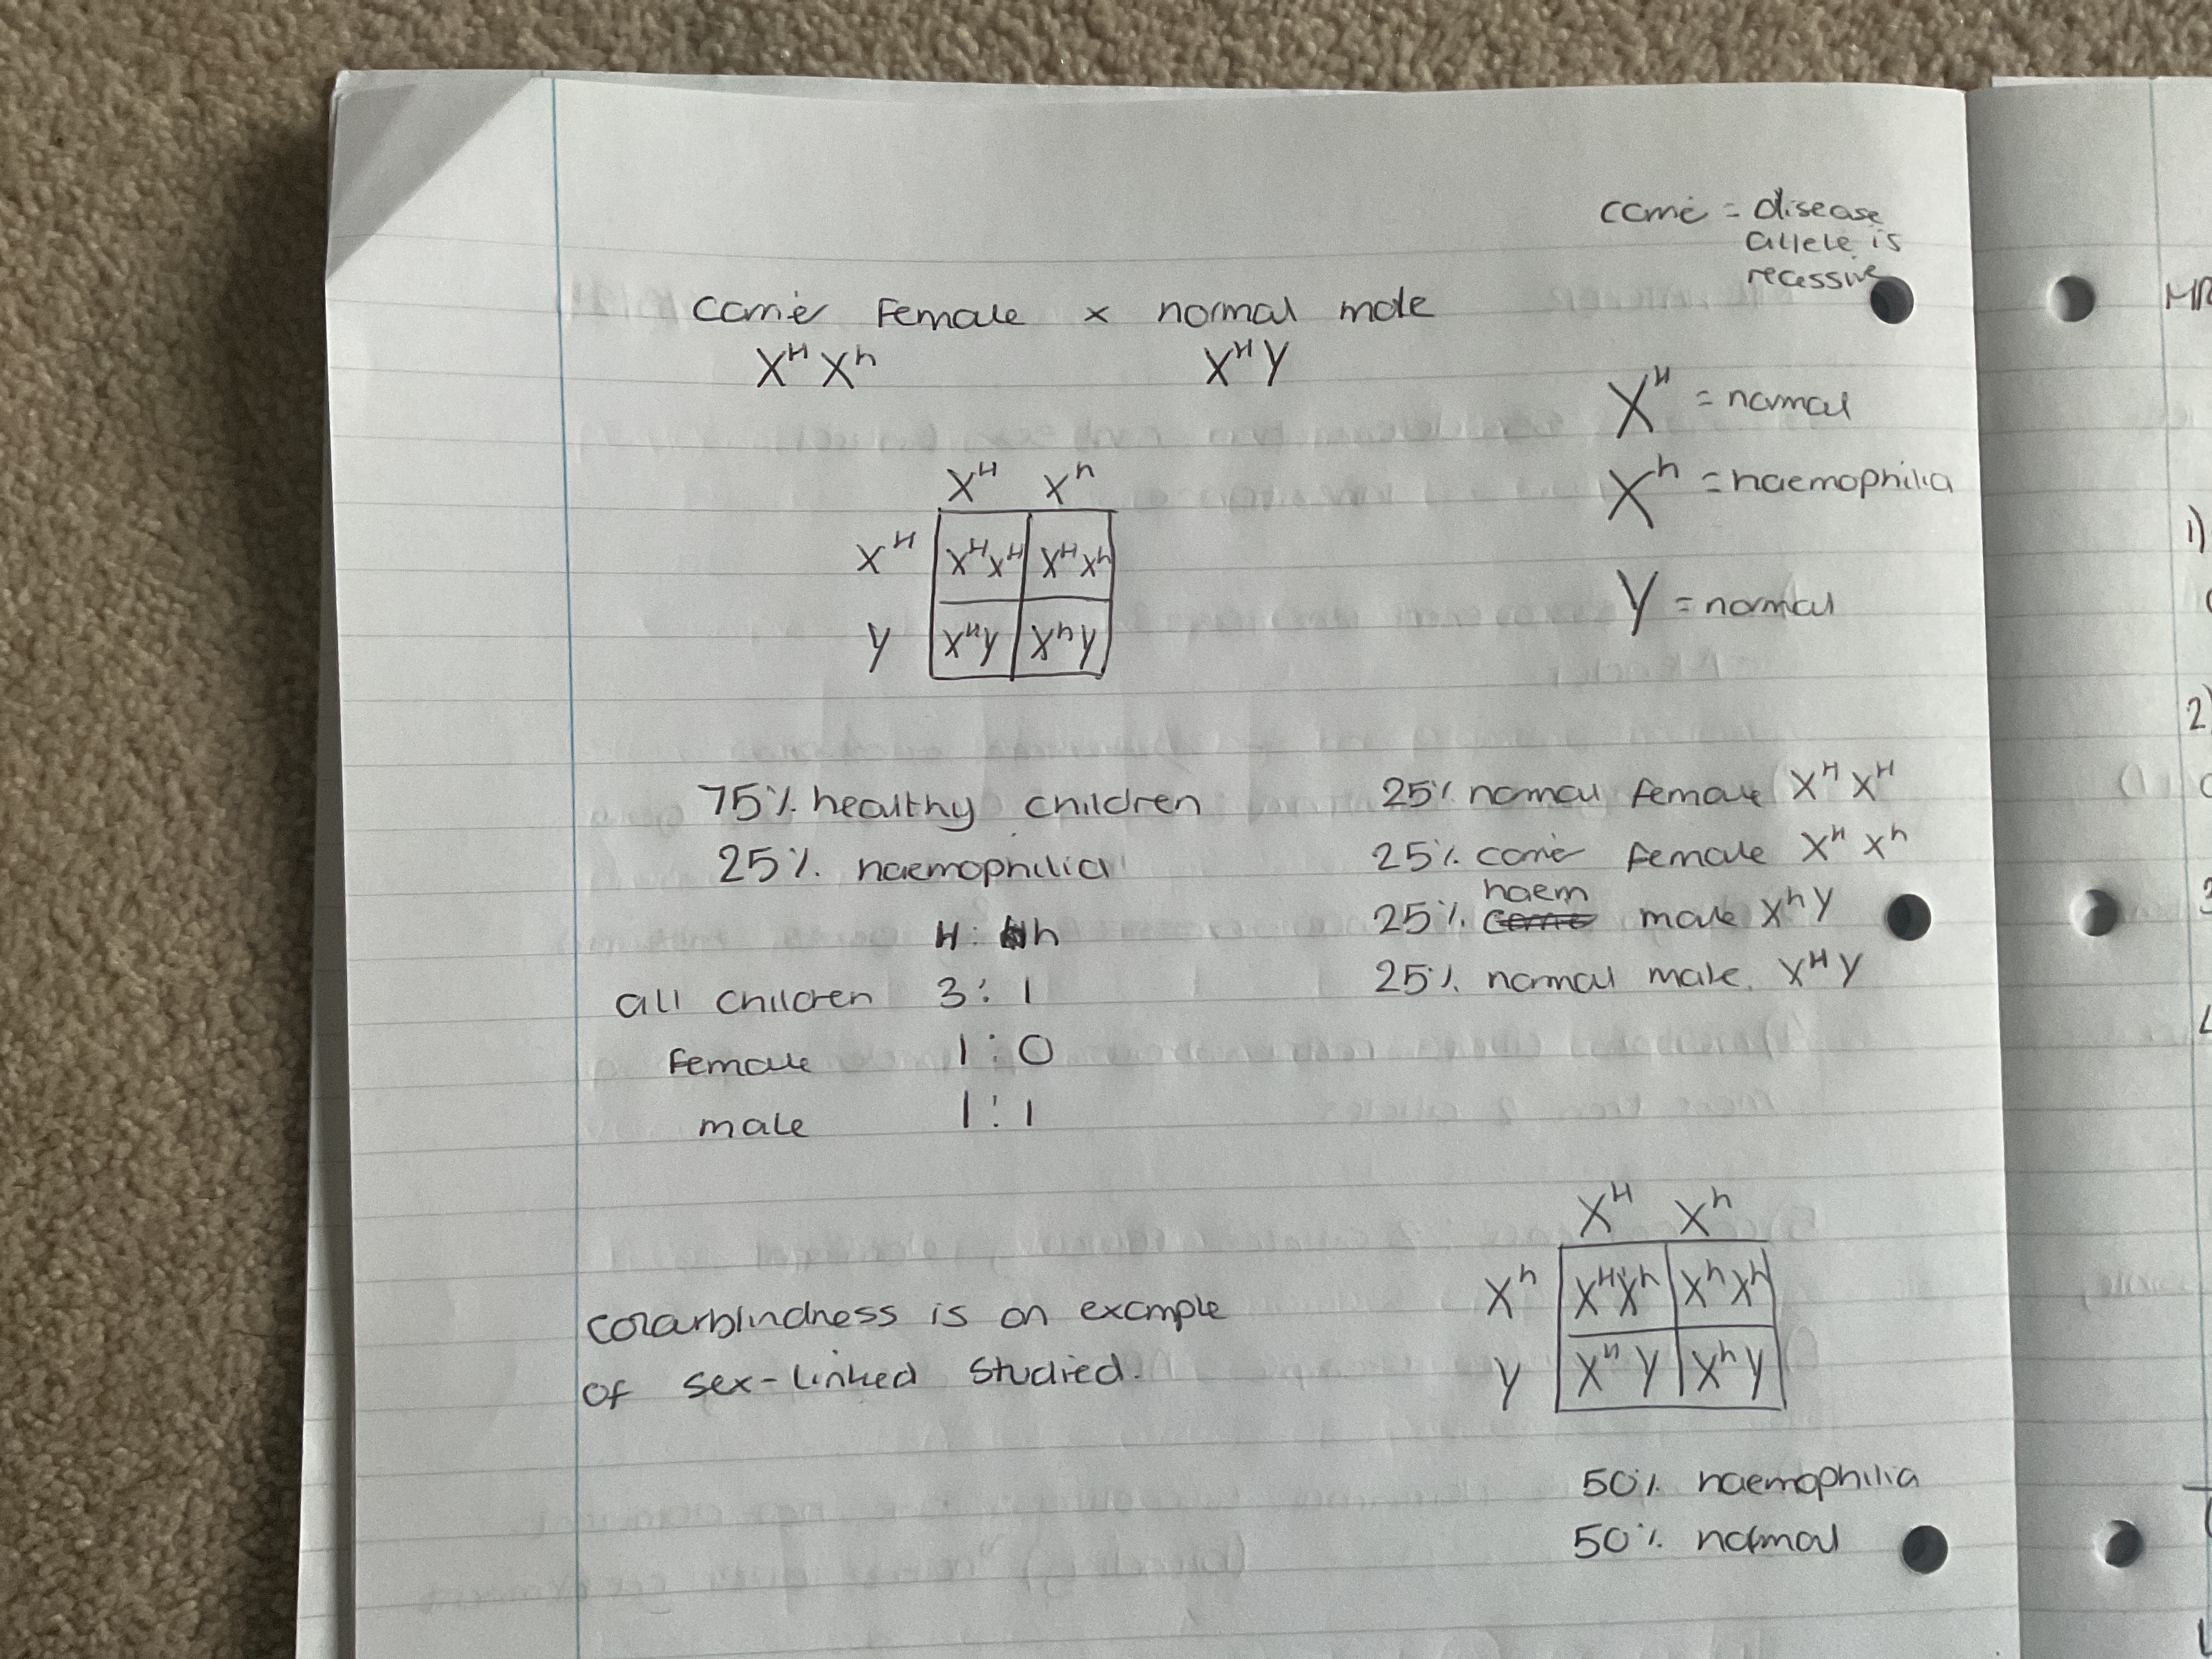 carrier = disease
allele is
recessive
carrier female x normal male
Xᴴ Xʰ Xᴴ Y
Xᴴ = normal
Xʰ = haemophilia
Y = normal
Xᴴ Xʰ
Xᴴ XᴴXᴴ XᴴXʰ
Y XᴴY XʰY
75% healthy children
25% haemophilia
H : h
all children 3 : 1
female 1 : 0
male 1 : 1
25% normal female Xᴴ Xᴴ
25% carrier female Xᴴ Xʰ
haem
25% male Xʰ Y
25% normal male. Xᴴ Y
colourblindness is an example
of sex-linked studied.
Xᴴ Xʰ
Xʰ XᴴXʰ XʰXʰ
Y Xᴴ Y Xʰ Y
50% haemophilia
50% normal
1)
2)